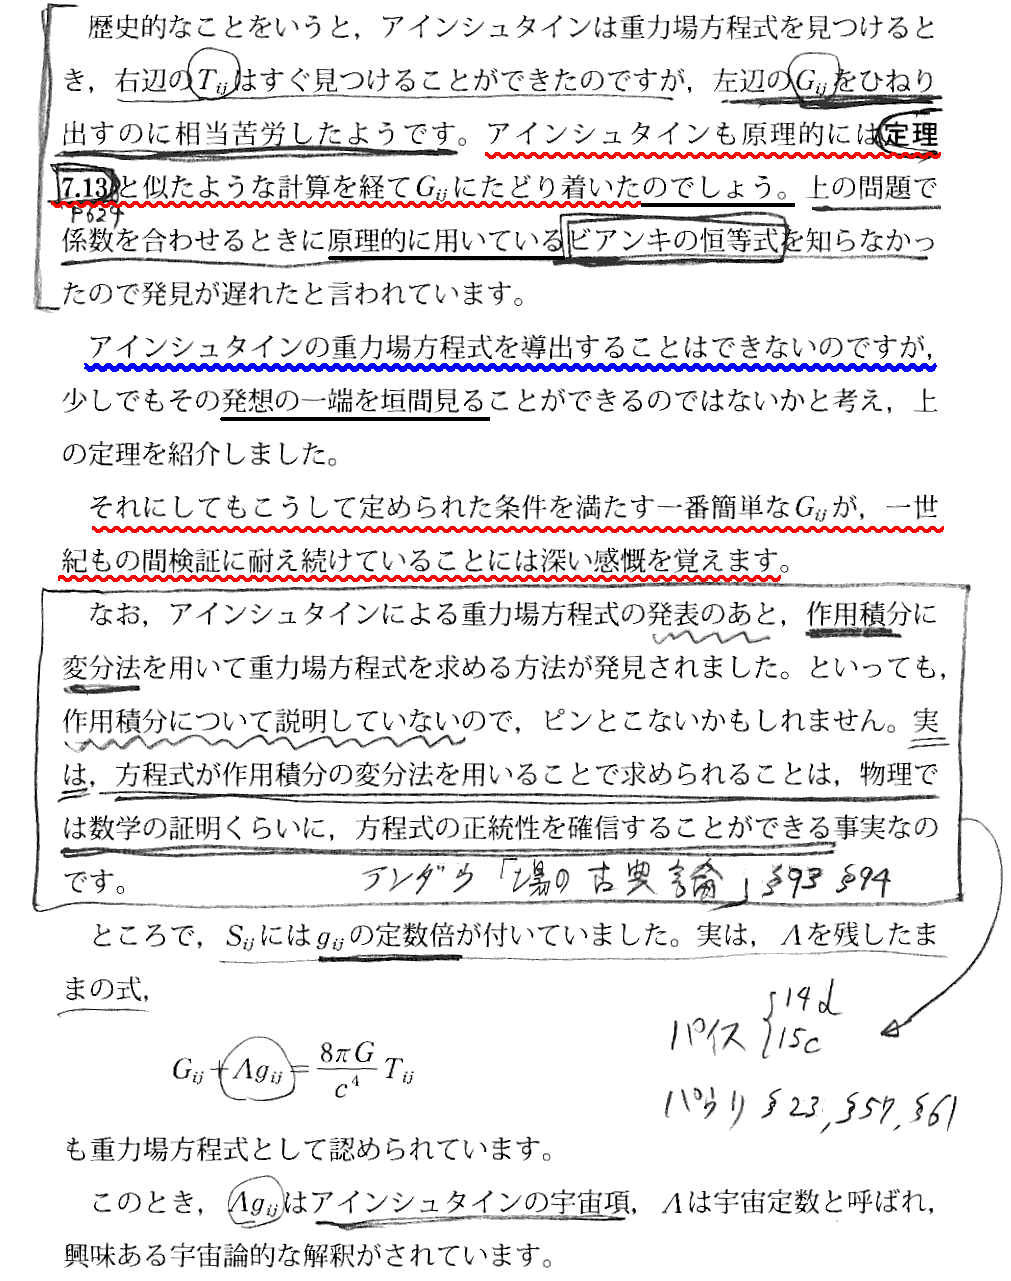 歴史的なことをいうと，アインシュタインは重力場方程式を見つけると
き，右辺のT_{ij}はすぐ見つけることができたのですが，左辺のG_{ij}をひねり
出すのに相当苦労したようです。アインシュタインも原理的には定理
7.13と似たような計算を経てG_{ij}にたどり着いたのでしょう。上の問題で
P624
係数を合わせるときに原理的に用いているビアンキの恒等式を知らなかっ
たので発見が遅れたと言われています。
アインシュタインの重力場方程式を導出することはできないのですが，
少しでもその発想の一端を垣間見ることができるのではないかと考え，上
の定理を紹介しました。
それにしてもこうして定められた条件を満たす一番簡単なG_{ij}が，一世
紀もの間検証に耐え続けていることには深い感慨を覚えます。
なお，アインシュタインによる重力場方程式の発表のあと，作用積分に
変分法を用いて重力場方程式を求める方法が発見されました。といっても，
作用積分について説明していないので，ピンとこないかもしれません。実
は，方程式が作用積分の変分法を用いることで求められることは，物理で
は数学の証明くらいに，方程式の正統性を確信することができる事実なの
です。
「場の古典論」§93 §94
ところで，S_{ij}にはg_{ij}の定数倍が付いていました。実は，Λを残したま
まの式，
パイス { 14d
15c
G_{ij} + Λg_{ij} = \frac{8πG}{c^4} T_{ij}
パウリ §23, §57, §61
も重力場方程式として認められています。
このとき，Λg_{ij}はアインシュタインの宇宙項，Λは宇宙定数と呼ばれ，
興味ある宇宙論的な解釈がされています。